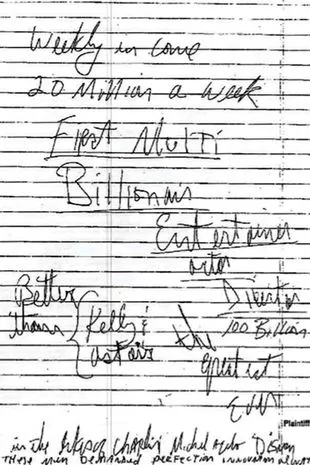 Weekly in come
20 Million a week
First Multi
Billionair
Entertainer
actor
Director
Better than { Kelly & astair
100 Billion
the greatest
Ever
Plaintiff
in the league Charlie Michel Disney
These men demanded perfection innovation